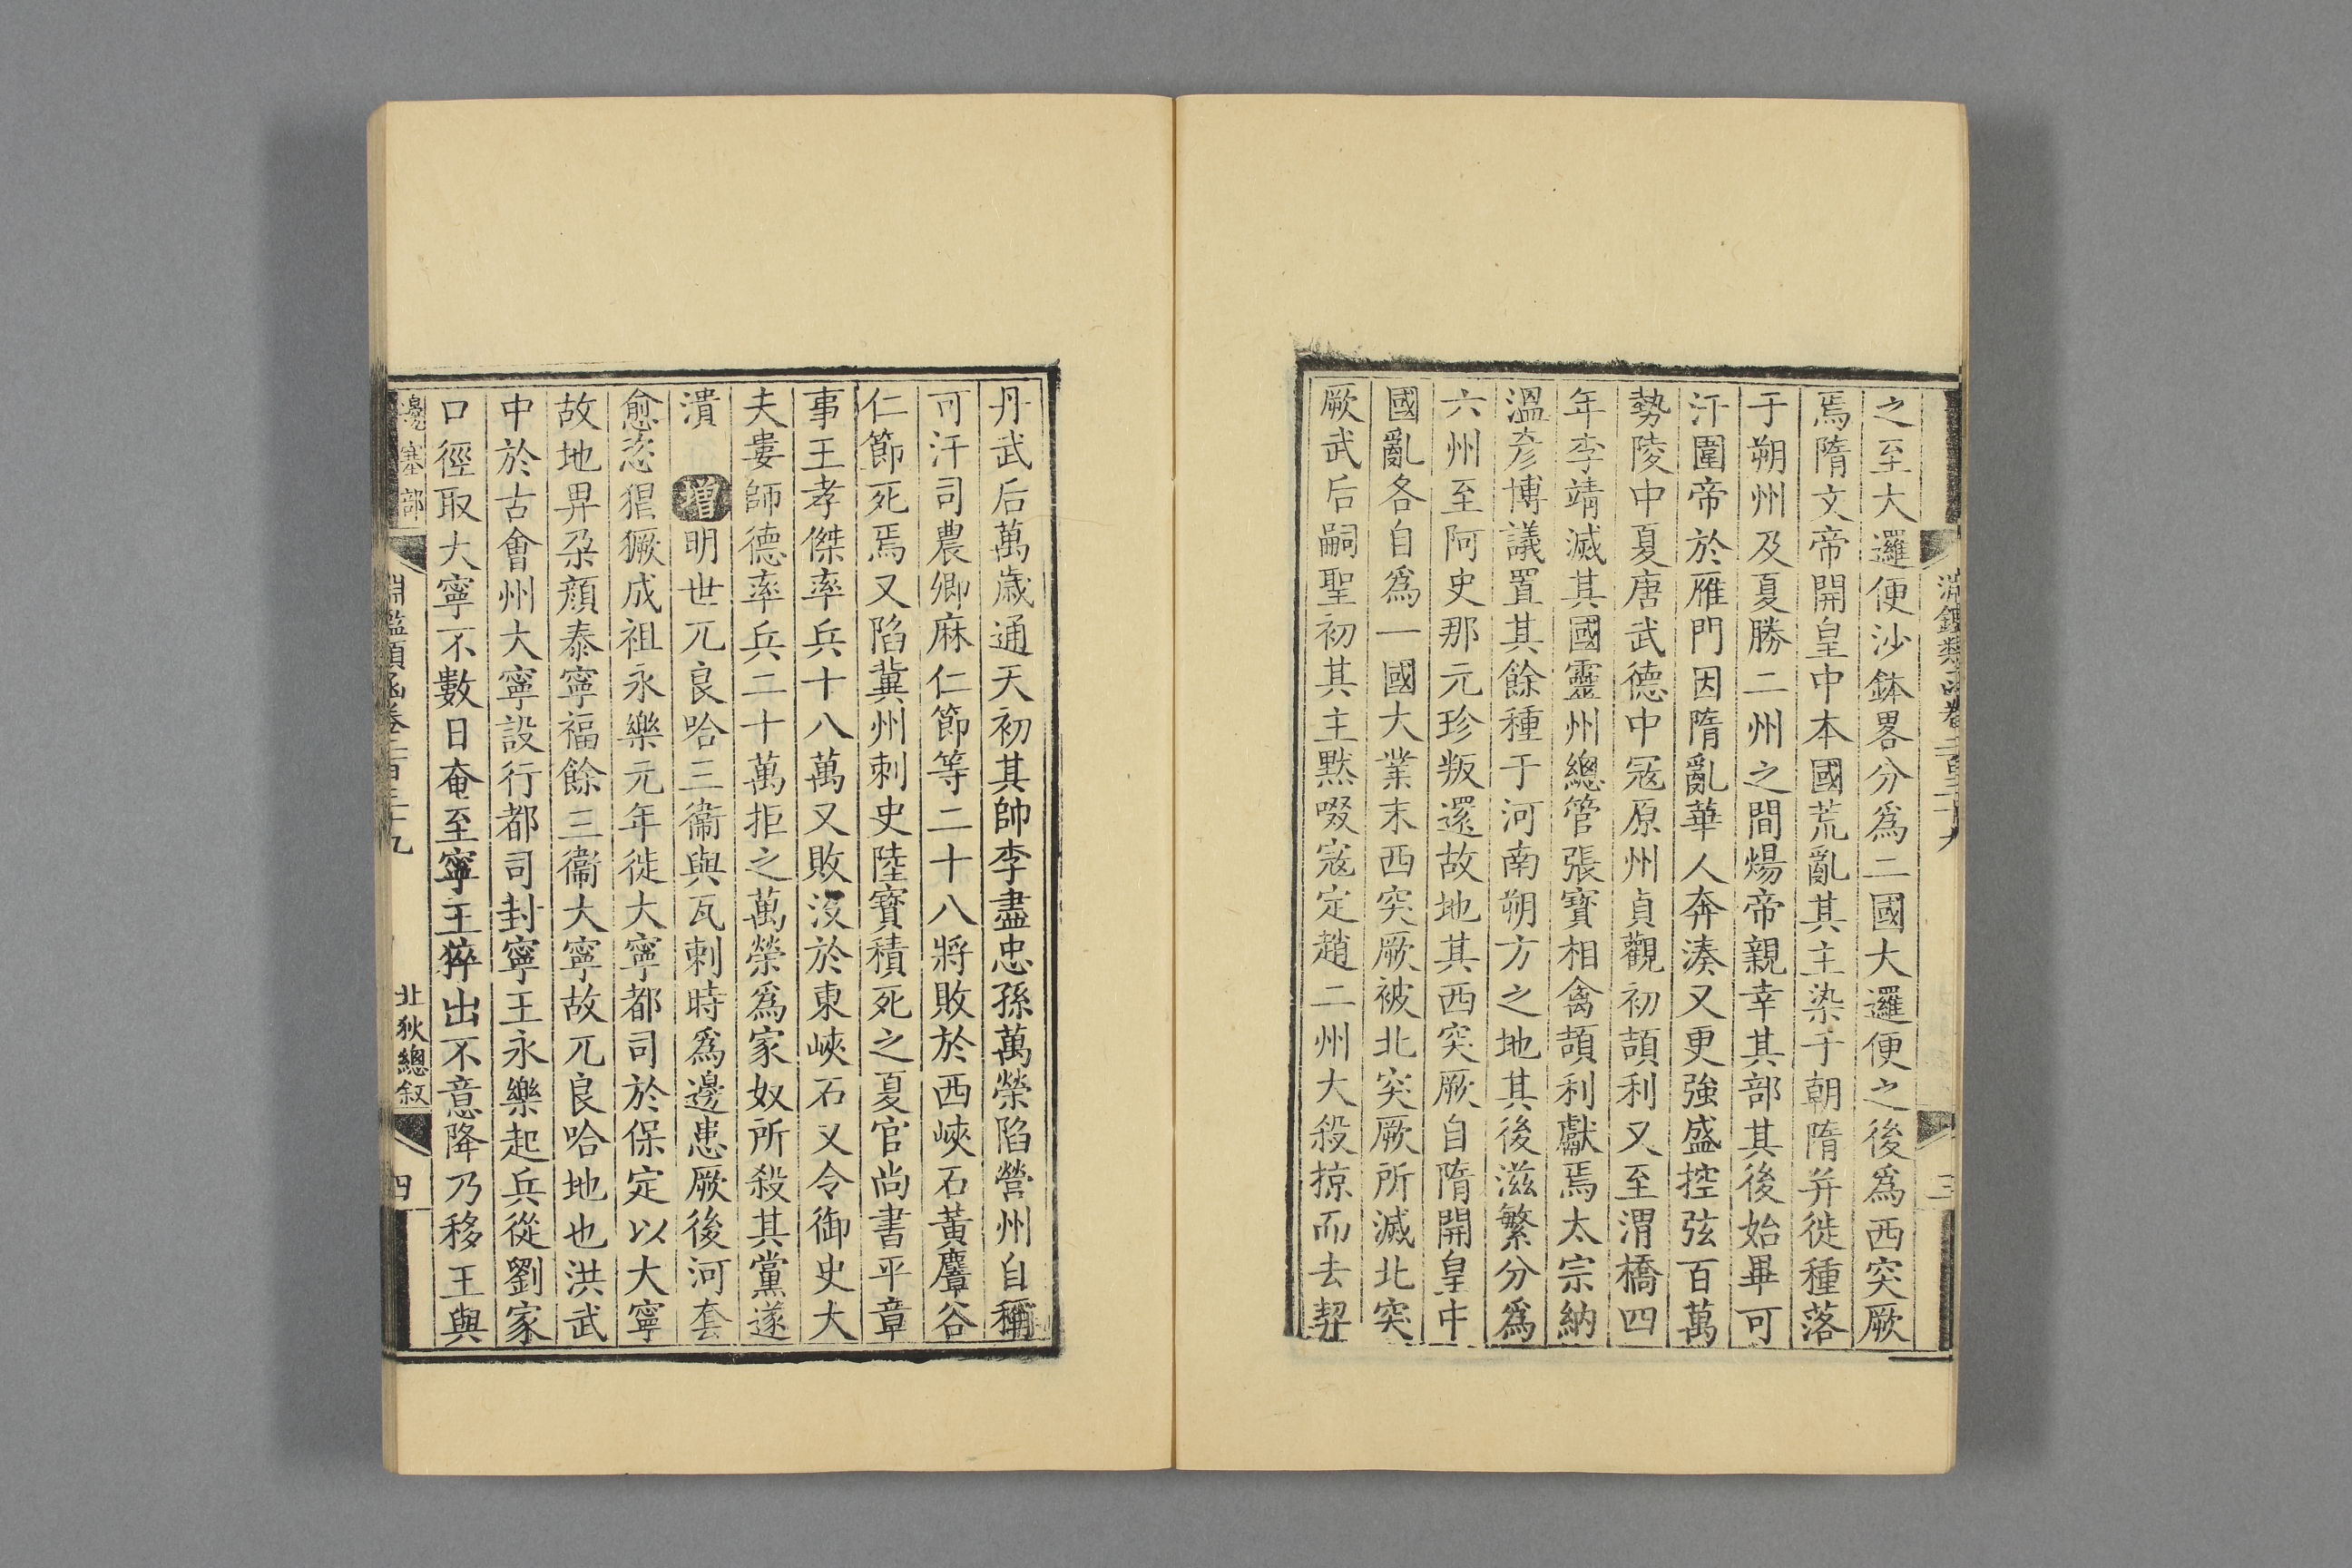 之至大邏便沙鉢畧分爲二國大邏便之後爲西突厥
焉隋文帝開皇中本國荒亂其主染于朝隋并徙種落
于朔州及夏勝二州之間煬帝親幸其部其後始畢可
汗圍帝於雁門因隋亂華人奔湊又更強盛控弦百萬
勢陵中夏唐武德中寇原州貞觀初頡利又至渭橋四
年李靖滅其國靈州總管張寶相禽頡利獻焉太宗納
溫彥博議置其餘種于河南朔方之地其後滋繁分爲
六州至阿史那元珍叛還故地其西突厥自隋開皇中
國亂各自爲一國大業末西突厥被北突厥所滅北突
厥武后嗣聖初其主默啜寇定趙二州大殺掠而去契
丹武后萬歲通天初其帥李盡忠孫萬榮陷營州自稱
可汗司農卿麻仁節等二十八將敗於西峽石黃麞谷
仁節死焉又陷冀州刺史陸寶積死之夏官尚書平章
事王孝傑率兵十八萬又敗沒於東峽石又令御史大
夫婁師德率兵二十萬拒之萬榮爲家奴所殺其黨遂
潰 增明世兀良哈三衞與瓦剌時爲邊患厥後河套
愈恣猖獗成祖永樂元年徙大寧都司於保定以大寧
故地畀朶顔泰寧福餘三衞大寧故兀良哈地也洪武
中於古會州大寧設行都司封寧王永樂起兵從劉家
口徑取大寧不數日奄至寧王猝出不意降乃移王與
邊塞部 淵鑑類函卷二百三十九 北狄總叙 四